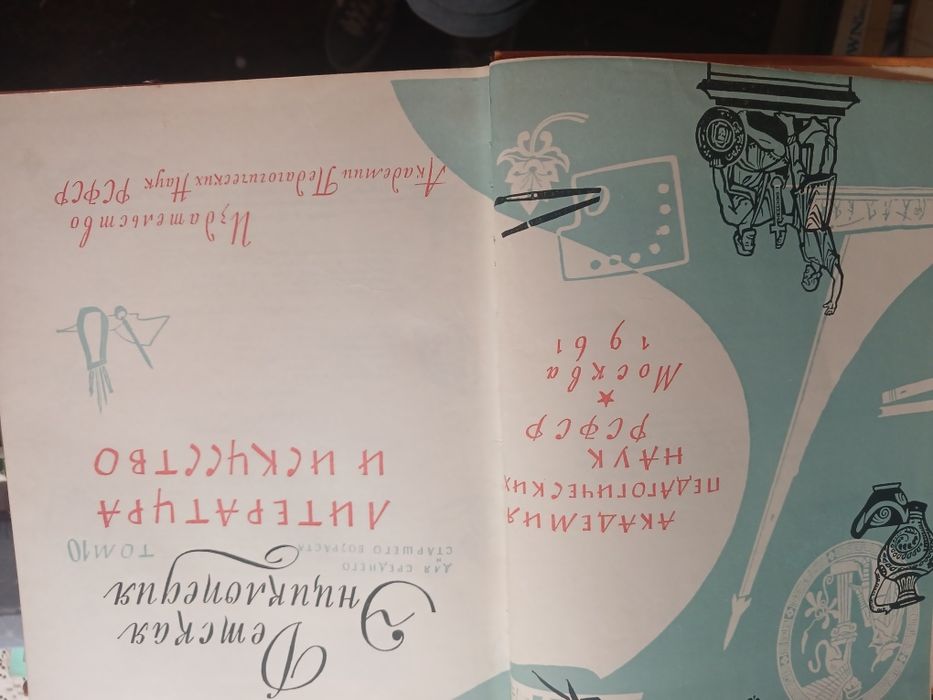 АКАДЕМИЯ
ПЕДАГОГИЧЕСКИХ
НАУК
РСФСР
Москва
1961
Детская
Энциклопедия
для среднего
и
старшего возраста
том 10
ЛИТЕРАТУРА
И ИСКУССТВО
Издательство
Академии Педагогических Наук РСФСР